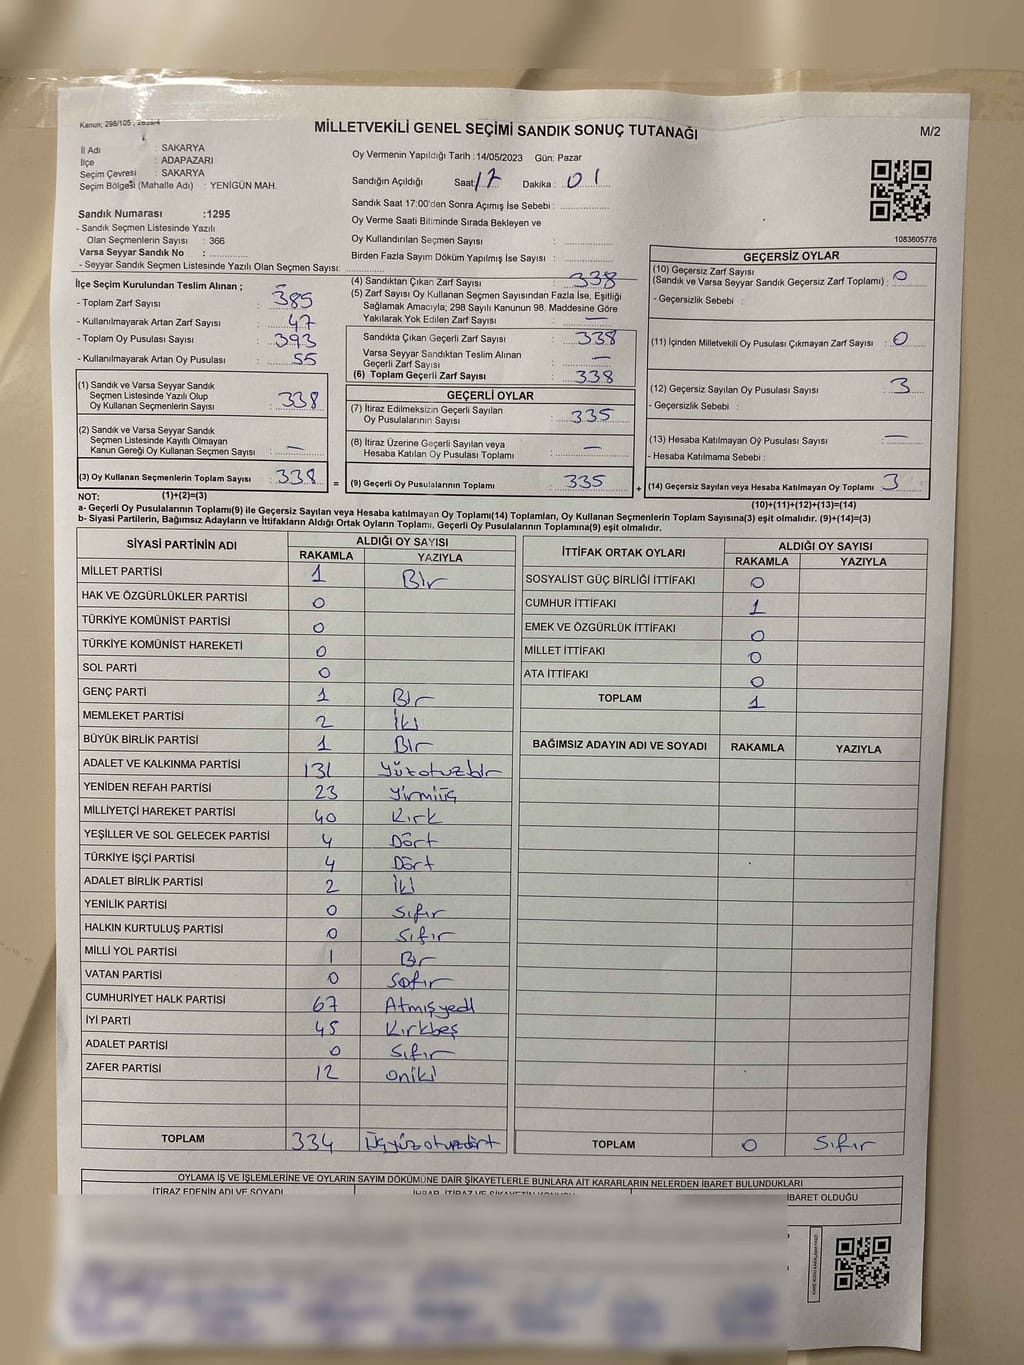 Kanun; 298/105
MİLLETVEKİLİ GENEL SEÇİMİ SANDIK SONUÇ TUTANAĞI
M/2
İl Adı : SAKARYA
İlçe : ADAPAZARI
Seçim Çevresi : SAKARYA
Seçim Bölgesi (Mahalle Adı) : YENİGÜN MAH.
Sandık Numarası :1295
- Sandık Seçmen Listesinde Yazılı
Olan Seçmenlerin Sayısı : 366
Varsa Seyyar Sandık No :
- Seyyar Sandık Seçmen Listesinde Yazılı Olan Seçmen Sayısı:
Oy Vermenin Yapıldığı Tarih :14/05/2023 Gün: Pazar
Sandığın Açıldığı Saat: 17 Dakika : 01
Sandık Saat 17:00'den Sonra Açımış İse Sebebi :
Oy Verme Saati Bitiminde Sırada Bekleyen ve
Oy Kullandırılan Seçmen Sayısı :
Birden Fazla Sayım Döküm Yapılmış İse Sayısı :
1083605776
İlçe Seçim Kurulundan Teslim Alınan ;
- Toplam Zarf Sayısı : 385
- Kullanılmayarak Artan Zarf Sayısı : 47
- Toplam Oy Pusulası Sayısı : 393
- Kullanılmayarak Artan Oy Pusulası : 55
(1) Sandık ve Varsa Seyyar Sandık
Seçmen Listesinde Yazılı Olup
Oy Kullanan Seçmenlerin Sayısı : 338
(2) Sandık ve Varsa Seyyar Sandık
Seçmen Listesinde Kayıtlı Olmayan
Kanun Gereği Oy Kullanan Seçmen Sayısı : —
(3) Oy Kullanan Seçmenlerin Toplam Sayısı : 338 =
(4) Sandıktan Çıkan Zarf Sayısı : 338
(5) Zarf Sayısı Oy Kullanan Seçmen Sayısından Fazla İse, Eşitliği
Sağlamak Amacıyla; 298 Sayılı Kanunun 98. Maddesine Göre
Yakılarak Yok Edilen Zarf Sayısı : —
Sandıkta Çıkan Geçerli Zarf Sayısı : 338
Varsa Seyyar Sandıktan Teslim Alınan
Geçerli Zarf Sayısı : —
(6) Toplam Geçerli Zarf Sayısı : 338
GEÇERLİ OYLAR
(7) İtiraz Edilmeksizin Geçerli Sayılan
Oy Pusulalarının Sayısı : 335
(8) İtiraz Üzerine Geçerli Sayılan veya
Hesaba Katılan Oy Pusulası Toplamı : —
(9) Geçerli Oy Pusulalarının Toplamı : 335 +
GEÇERSİZ OYLAR
(10) Geçersiz Zarf Sayısı
(Sandık ve Varsa Seyyar Sandık Geçersiz Zarf Toplamı) : 0
- Geçersizlik Sebebi :
(11) İçinden Milletvekili Oy Pusulası Çıkmayan Zarf Sayısı : 0
(12) Geçersiz Sayılan Oy Pusulası Sayısı : 3
- Geçersizlik Sebebi :
(13) Hesaba Katılmayan Oy Pusulası Sayısı : —
- Hesaba Katılmama Sebebi :
(14) Geçersiz Sayılan veya Hesaba Katılmayan Oy Toplamı : 3
NOT: (1)+(2)=(3) (10)+(11)+(12)+(13)=(14)
a- Geçerli Oy Pusulalarının Toplamı(9) ile Geçersiz Sayılan veya Hesaba katılmayan Oy Toplamı(14) Toplamları, Oy Kullanan Seçmenlerin Toplam Sayısına(3) eşit olmalıdır. (9)+(14)=(3)
b- Siyasi Partilerin, Bağımsız Adayların ve İttifakların Aldığı Ortak Oyların Toplamı, Geçerli Oy Pusulalarının Toplamına(9) eşit olmalıdır.
SİYASİ PARTİNİN ADI ALDIĞI OY SAYISI
RAKAMLA YAZIYLA
MİLLET PARTİSİ 1 Bir
HAK VE ÖZGÜRLÜKLER PARTİSİ 0
TÜRKİYE KOMÜNİST PARTİSİ 0
TÜRKİYE KOMÜNİST HAREKETİ 0
SOL PARTİ 0
GENÇ PARTİ 1 Bir
MEMLEKET PARTİSİ 2 İki
BÜYÜK BİRLİK PARTİSİ 1 Bir
ADALET VE KALKINMA PARTİSİ 131 Yüzotuzbir
YENİDEN REFAH PARTİSİ 23 Yirmiüç
MİLLİYETÇİ HAREKET PARTİSİ 40 Kırk
YEŞİLLER VE SOL GELECEK PARTİSİ 4 Dört
TÜRKİYE İŞÇİ PARTİSİ 4 Dört
ADALET BİRLİK PARTİSİ 2 İki
YENİLİK PARTİSİ 0 Sıfır
HALKIN KURTULUŞ PARTİSİ 0 Sıfır
MİLLİ YOL PARTİSİ 1 Bir
VATAN PARTİSİ 0 Sıfır
CUMHURİYET HALK PARTİSİ 67 Atmışyedi
İYİ PARTİ 45 Kırkbeş
ADALET PARTİSİ 0 Sıfır
ZAFER PARTİSİ 12 Oniki
TOPLAM 334 Üçyüzotuzdört
İTTİFAK ORTAK OYLARI ALDIĞI OY SAYISI
RAKAMLA YAZIYLA
SOSYALİST GÜÇ BİRLİĞİ İTTİFAKI 0
CUMHUR İTTİFAKI 1
EMEK VE ÖZGÜRLÜK İTTİFAKI 0
MİLLET İTTİFAKI 0
ATA İTTİFAKI 0
TOPLAM 1
BAĞIMSIZ ADAYIN ADI VE SOYADI RAKAMLA YAZIYLA
TOPLAM 0 Sıfır
OYLAMA İŞ VE İŞLEMLERİNE VE OYLARIN SAYIM DÖKÜMÜNE DAİR ŞİKAYETLERLE BUNLARA AİT KARARLARIN NELERDEN İBARET BULUNDUKLARI
İTİRAZ EDENİN ADI VE SOYADI
İBARET OLDUĞU